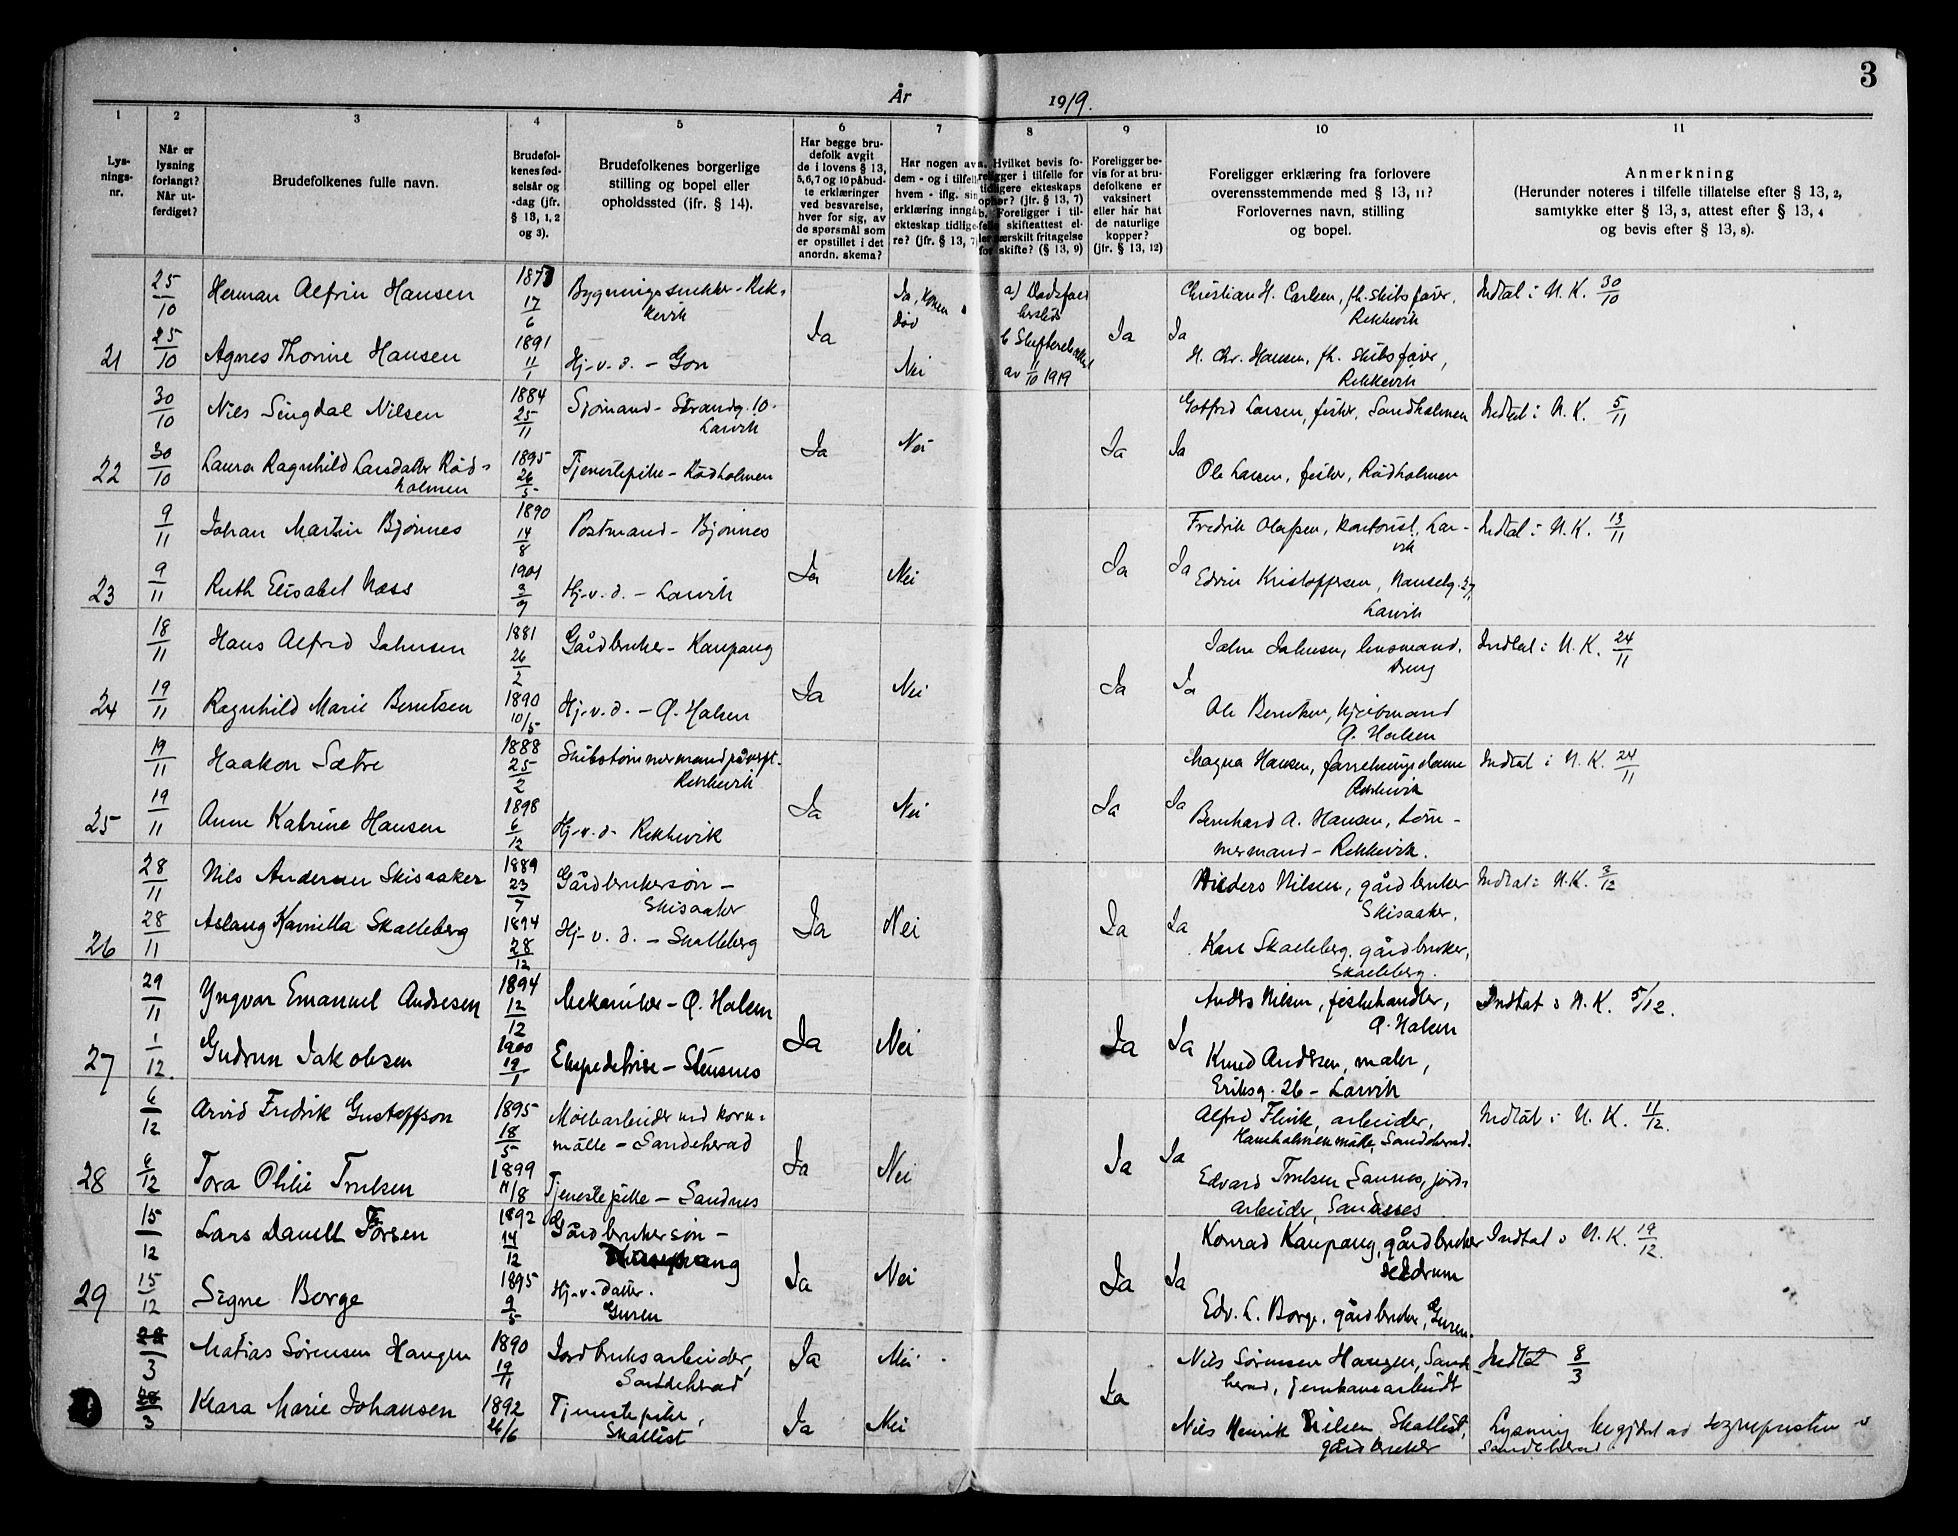 3
År 1919.
1
2
3
4
5
6
7
8
9
10
11
Lysningsnr.
Når er lysning forlangt? Når utferdiget?
Brudefolkenes fulle navn.
Brudefolkenes fødselsår og -dag (jfr. § 13, 1, 2 og 3).
Brudefolkenes borgerlige stilling og bopel eller opholdssted (ifr. § 14).
Har begge brudefolk avgit de i lovens § 13, 5, 6, 7 og 10 påbudte erklæringer ved besvarelse, hver for sig, av de spørsmål som er opstillet i det anordn. skema?
Har nogen av dem - og i tilfelle hvem - iflg. sin erklæring inngåt ekteskap tidligere? (jfr. § 13, 7)
a. Hvilket bevis foreligger i tilfelle for tidligere ekteskaps ophør? (jfr. § 13, 7) b. Foreligger i tilfelle skifteattest eller særskilt fritagelse for skifte? (§ 13, 9)
Foreligger bevis for at brudefolkene er vaksinert eller har hat de naturlige kopper? (jfr. § 13, 12)
Foreligger erklæring fra forlovere overensstemmende med § 13, 11? Forlovernes navn, stilling og bopel.
Anmerkning (Herunder noteres i tilfelle tillatelse efter § 13, 2, samtykke efter § 13, 3, attest efter § 13, 4 og bevis efter § 13, 8).
25/10 Herman Alfrin Hansen 17/6 Bygningssnekker - Rekkevik Ja, konen død a) Dødsfaldsbevis Christian H. Carlsen, fh. skibsfører, Rekkevik Indtat i N. K. 30/10
21 25/10 Agnes Thorine Hansen 1891 11/1 Hj. v. d. - Gon Ja Nei av 11/10 1919 Ja Ja H. Chr. Hansen, fh. skibsfører, Rekkevik
30/10 Nils Singdal Nilsen 1884 25/11 Sjømand - Strandg. 10. Larvik Gotfred Larsen, fisker, Sandholmen Indtat i N. K. 5/11
22 30/10 Laura Ragnhild Larsdatter Rødholmen 1895 26/5 Tjenestepike - Rødholmen Ja Nei Ja Ja Ole Larsen, fisker, Rødholmen
9/11 Johan Martin Bjønnes 1890 14/8 Postmand - Bjønnes Fredrik Olafsen, kontorist, Larvik Indtat i N. K. 13/11
23 9/11 Ruth Elisabet Næss 1901 3/9 Hj. v. d. - Larvik Ja Nei Ja Ja Edvin Kristoffersen, Nanseng. 27, Larvik
18/11 Hans Alfred Johnsen 1881 26/2 Gårdbruker - Kaupang John Johnsen, Indtat i N. K. 24/11
24 19/11 Ragnhild Marie Berntsen 1890 10/5 Hj. v. d. - Ø. Halsen Ja Nei Ja Ja Ole Berntsen, Ø. Halsen
19/11 Haakon Sætre 1888 25/2 Skibstømmermand på verft. Rekkevik Magna Hansen, forretningsdame Rekkevik Indtat i N. K. 24/11
25 19/11 Anne Katrine Hansen 1898 6/12 Hj. v. d. Rekkevik Ja Nei Ja Ja Bernhard A. Hansen, tømmermand - Rekkevik.
28/11 Nils Andersen Skisaaker 1889 23/7 Gårdbrukersøn - Skisaaker Anders Nilsen, gårdbruker Skisaaker. Indtat i N. K. 3/12
26 28/11 Aslaug Kamilla Skalleberg 1894 28/12 Hj. v. d. - Skalleberg Ja Nei Ja Ja Karl Skalleberg, gårdbruker, Skalleberg.
29/11 Yngvar Emanuel Andresen 1894 12/12 Mekaniker - Ø. Halsen Anders Nilsen, fiskehandler, Ø. Halsen Indtat i N. K. 5/12.
27 1/12. Gudrun Jakobsen 1900 19/1 Ekspeditrise - Stensnes Ja Nei Ja Ja Knud Andresen, maler, Eriksg. 26 - Larvik
6/12 Arvid Fredrik Gustoffson 1895 18/5 Møllearbeider ved kornmølle - Sandeherad Alfred Flink, arbeider, Sandeherad. Indtat i N. K. 11/12.
28 6/12 Tora Otilie Trulsen 1899 11/8 Tjenestepike - Sandnes Ja Nei Ja Ja Edvard Trulsen Sannes, jordarbeider, Sannes
15/12 Lars Danell Torsen 1892 14/12 Gårdbrukersøn - Kaupang Konrad Kaupang, gårdbruker Indtat i N. K. 19/12.
29 15/12 Signe Borge 1895 9/5 Hj. v. datter. Guren Ja Nei Ja Ja Edv. L. Borge, gårdbruker, Guren.
28/3 Matias Sørensen Haugen 1890 19/11 Jordbruksarbeider, Sandeherad Ja Nei. Nils Sørensen Haugen, Sandeherad, jernbanearbeidr Indtat 8/3
28/3 Klara Marie Johansen 1892 26/6 Tjenestepike, Skallist Ja Nei Ja Niels Henrik Nilsen Skallist, gårdbruker Lysning begjært av sogneprsten i Sandeherad